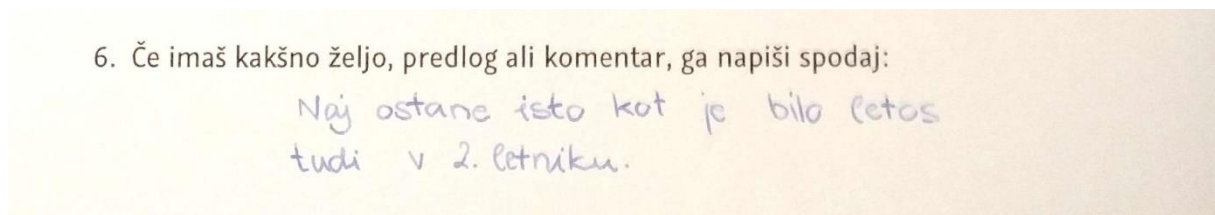 6. Če imaš kakšno željo, predlog ali komentar, ga napiši spodaj:
Naj ostane isto kot je bilo letos
tudi v 2. letniku.